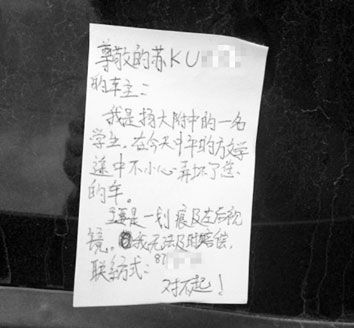 尊敬的苏KU
的车主：
我是扬大附中的一名
学生，在今天中午的放学
途中不小心弄坏了您
的车。
主要是一划痕及左后视
镜。我无法及时赔偿，
联系方式：87
对不起！